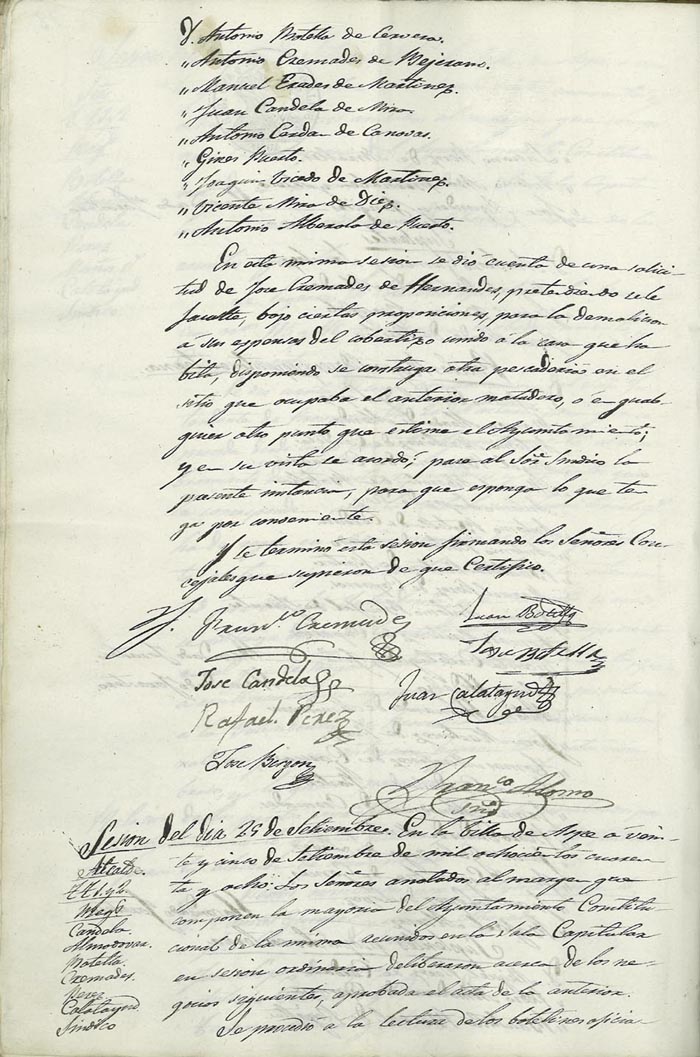 D. Antonio Botella de Cervera.
" Antonio Cremades de Bejerano.
" Manuel Erades de Martinez.
" Juan Candela de Miro.
" Antonio Cerda de Canovas.
" Gines Puerto.
" Joaquin Vicedo de Martinez.
" Vicente Miro de Diez.
" Antonio Alberola de Puerto.
En esta misma sesion se dio cuenta de una solici-
tud de Jose Cremades de Hernandes, pretendiendo se le
faculte, bajo ciertas proposiciones, para la demolicion
á sus espensas del cobertizo unido á la casa que ha
bita, disponiendo se contruya otra pescaderia en el
sitio que ocupaba el anterior matadero, ó en qual-
quier otro punto que estime el Ayuntamiento;
y en su vista se acordó; pase al Sor. Sindico la
presente instancia, para que esponga lo que ten
ga por conveniente.
Y se terminó esta sesion firmando los Señores Con-
cejales que supieron de que Certifico.
Franco Cremades
Juan Botella
Jose Botella
Jose Candela
Juan Calatayud
Rafael Perez
Jose Berzon
Franco Alonso
Sesion del dia 25 de Setiembre. En la billa de Aspe á vein-
Alcalde. te y cinco de Setiembre de mil ochocientos cuaren
Tt. 1. y 2. ta y ocho: Los Señores anotados al margen que
componen la mayoria del Ayuntamiento Constitu
Candela cional de la misma reunidos en la Sala Capitular
Almodovar.
Botella. en sesion ordinaria deliberaron acerca de los ne-
Cremades.
Perez gocios siguientes, aprobada el acta de la anterior.
Calatayud
Sindico Se procedió a la lectura de los boletines oficia-